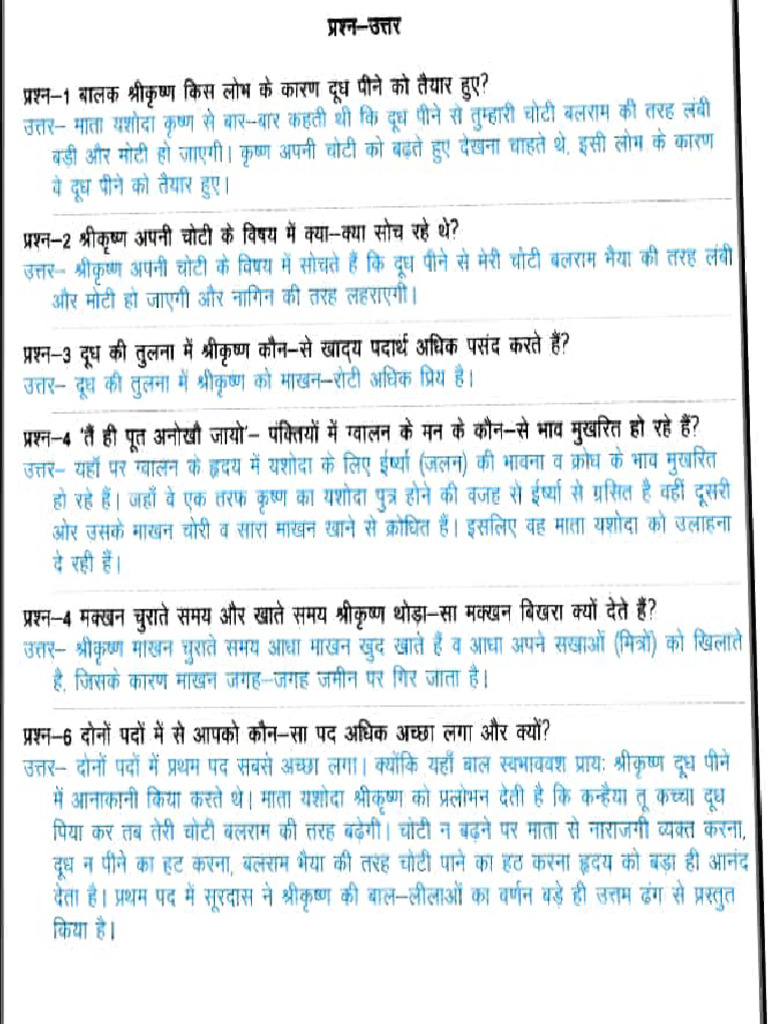 प्रश्न-उत्तर
प्रश्न-1 बालक श्रीकृष्ण किस लोभ के कारण दूध पीने को तैयार हुए?
उत्तर- माता यशोदा कृष्ण से बार-बार कहती थी कि दूध पीने से तुम्हारी चोटी बलराम की तरह लंबी
बड़ी और मोटी हो जाएगी। कृष्ण अपनी चोटी को बढ़ते हुए देखना चाहते थे, इसी लोभ के कारण
वे दूध पीने को तैयार हुए।
प्रश्न-2 श्रीकृष्ण अपनी चोटी के विषय में क्या-क्या सोच रहे थे?
उत्तर- श्रीकृष्ण अपनी चोटी के विषय में सोचते हैं कि दूध पीने से मेरी चोटी बलराम भैया की तरह लंबी
और मोटी हो जाएगी और नागिन की तरह लहराएगी।
प्रश्न-3 दूध की तुलना में श्रीकृष्ण कौन-से खाद्य पदार्थ अधिक पसंद करते हैं?
उत्तर- दूध की तुलना में श्रीकृष्ण को माखन-रोटी अधिक प्रिय है।
प्रश्न-4 'तैं ही पूत अनोखौ जायो'- पंक्तियों में ग्वालन के मन के कौन-से भाव मुखरित हो रहे हैं?
उत्तर- यहाँ पर ग्वालन के हृदय में यशोदा के लिए ईर्ष्या (जलन) की भावना व क्रोध के भाव मुखरित
हो रहे हैं। जहाँ वे एक तरफ कृष्ण का यशोदा पुत्र होने की वजह से ईर्ष्या से ग्रसित है वहीं दूसरी
ओर उसके माखन चोरी व सारा माखन खाने से क्रोधित हैं। इसलिए वह माता यशोदा को उलाहना
दे रही हैं।
प्रश्न-4 मक्खन चुराते समय और खाते समय श्रीकृष्ण थोड़ा-सा मक्खन बिखरा क्यों देते हैं?
उत्तर- श्रीकृष्ण माखन चुराते समय आधा माखन खुद खाते हैं व आधा अपने सखाओं (मित्रों) को खिलाते
है, जिसके कारण माखन जगह-जगह जमीन पर गिर जाता है।
प्रश्न-6 दोनों पदों में से आपको कौन-सा पद अधिक अच्छा लगा और क्यों?
उत्तर- दोनों पदों में प्रथम पद सबसे अच्छा लगा। क्योंकि यहाँ बाल स्वभाववश प्रायः श्रीकृष्ण दूध पीने
में आनाकानी किया करते थे। माता यशोदा श्रीकृष्ण को प्रलोभन देती है कि कन्हैया तू कच्चा दूध
पिया कर तब तेरी चोटी बलराम की तरह बढ़ेगी। चोटी न बढ़ने पर माता से नाराजगी व्यक्त करना,
दूध न पीने का हट करना, बलराम भैया की तरह चोटी पाने का हठ करना हृदय को बड़ा ही आनंद
देता है। प्रथम पद में सूरदास ने श्रीकृष्ण की बाल-लीलाओं का वर्णन बड़े ही उत्तम ढंग से प्रस्तुत
किया है।